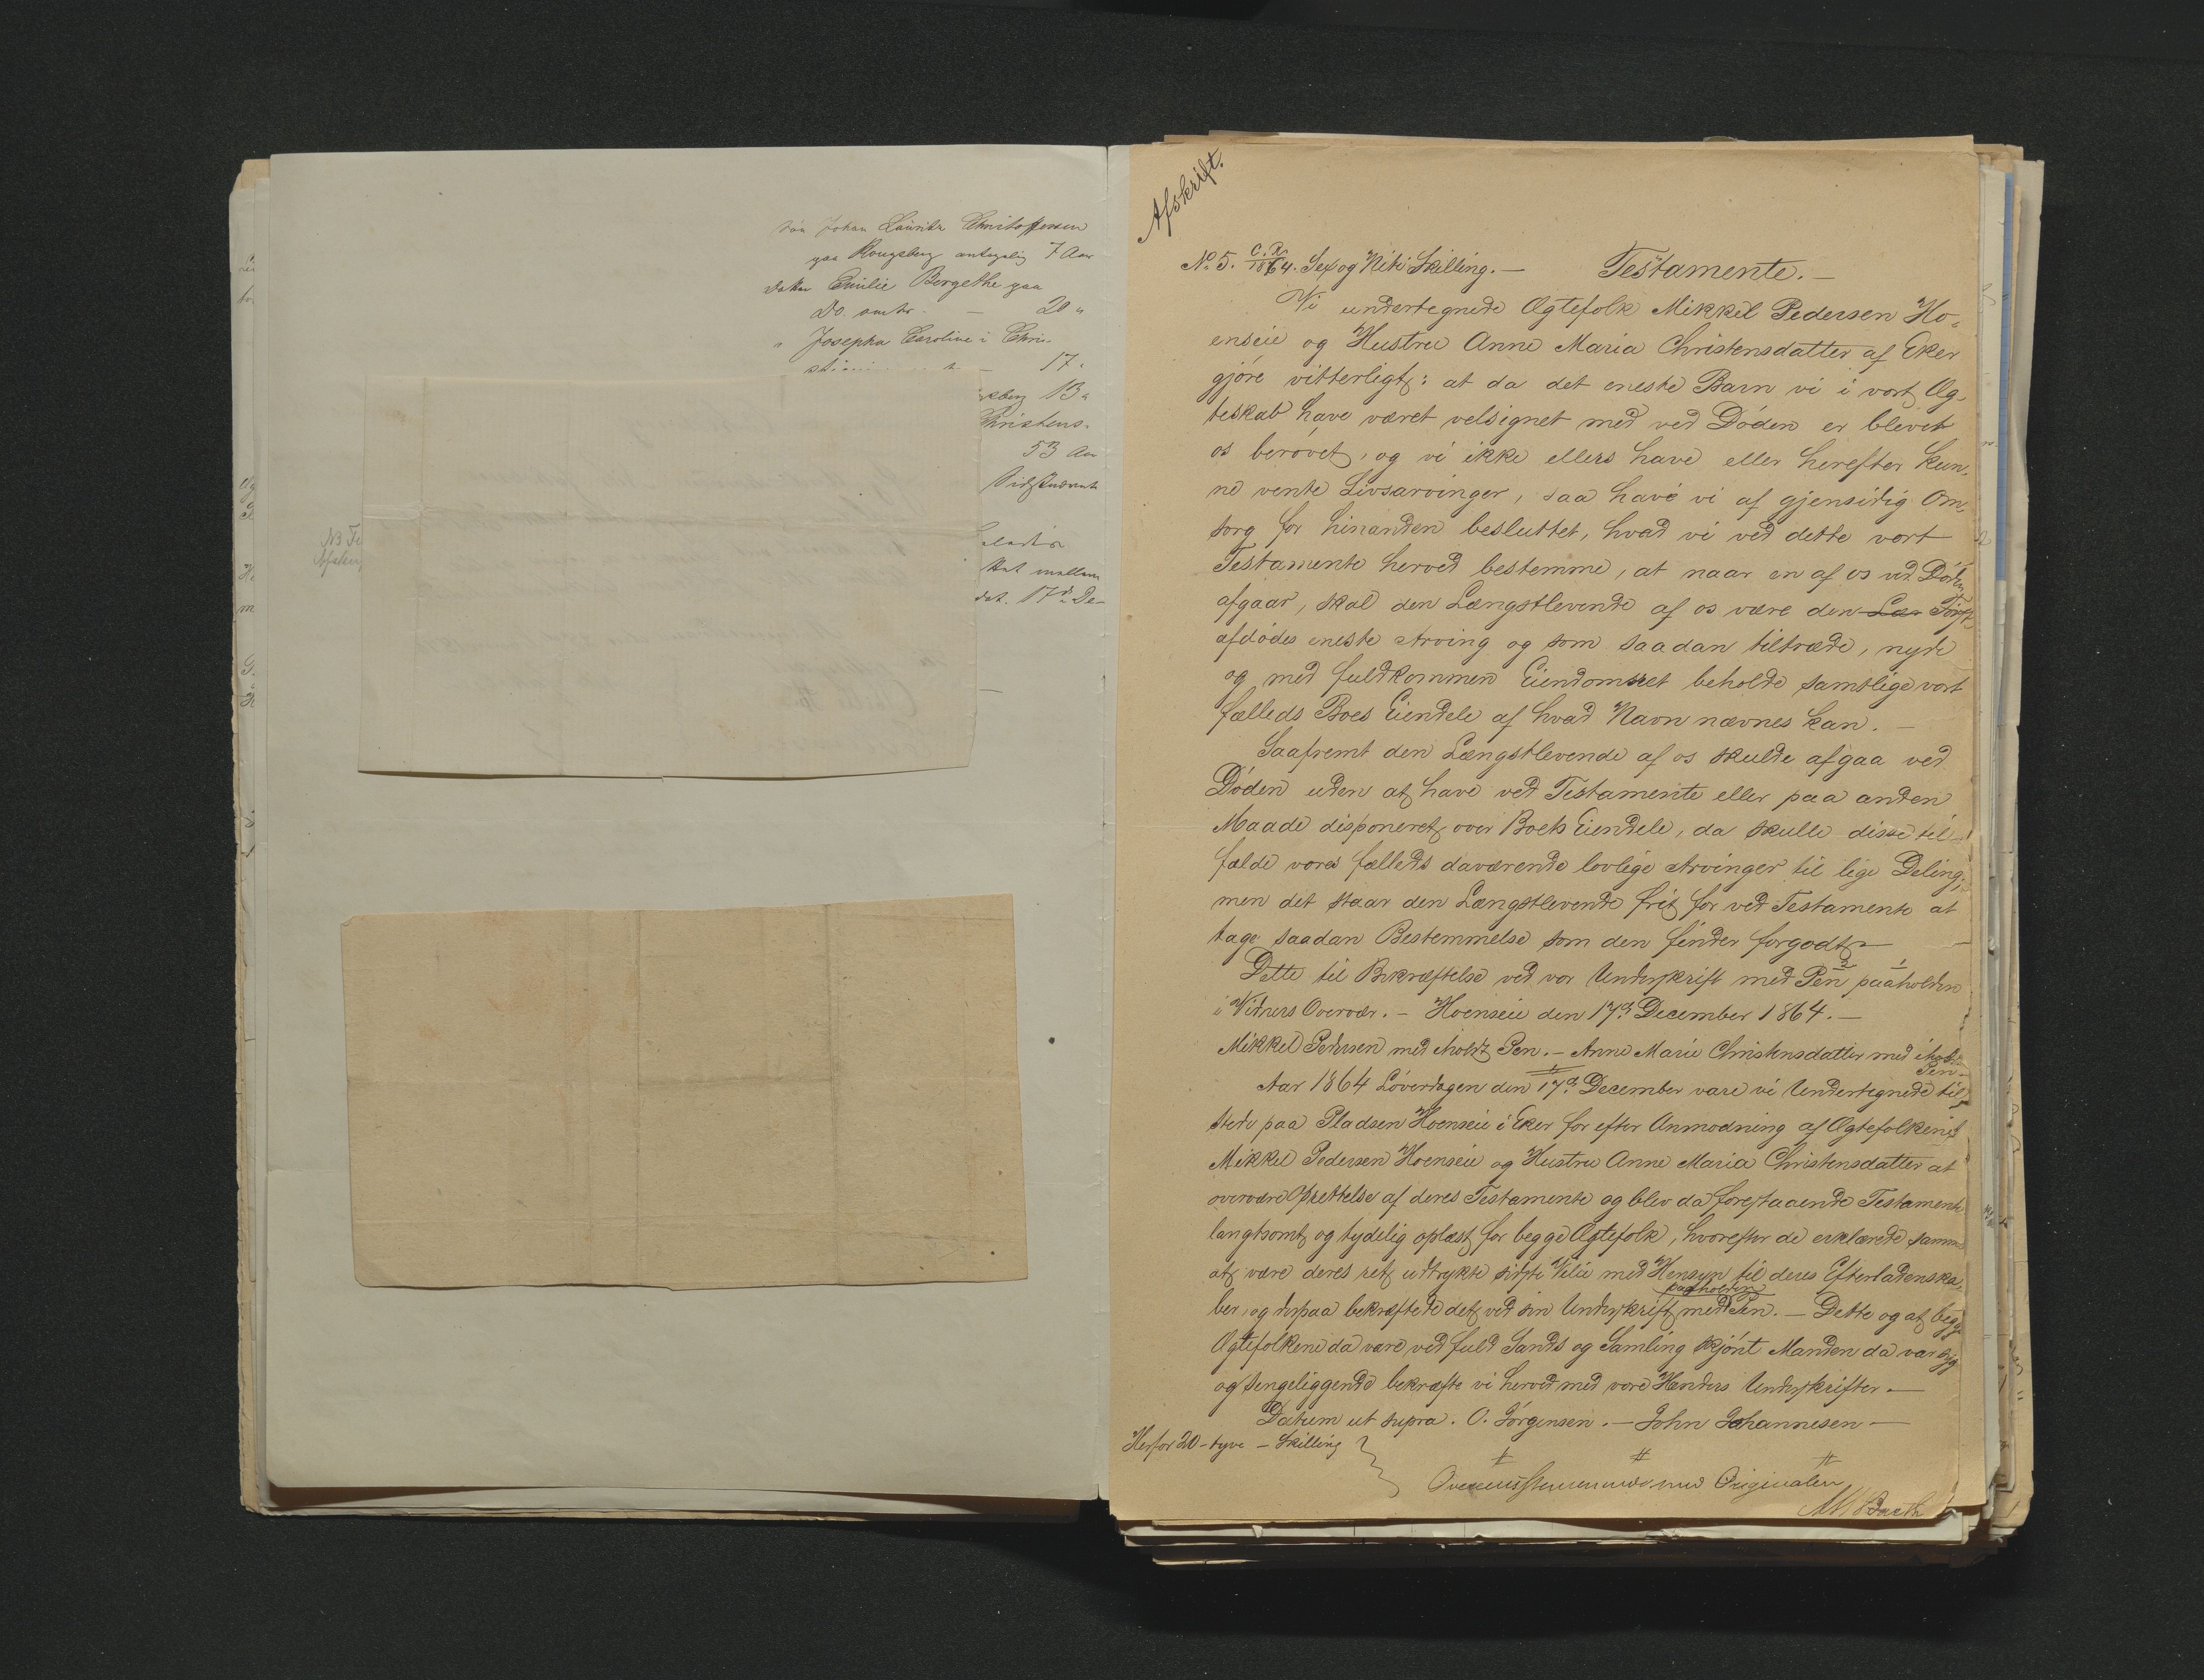 Søn Johan Lauritz Christoffersen
paa Kongsberg antagelig 7 Aar
Datter Emilie Bergethe paa
Do. omtr. — 20 "
" Josepha Caroline i Chri-
17 "
13 "
Christens-
53 Aar
dat. 17d De-
NB
Afskrift.
No. 5. C.R. 1864. Sex og Niti Skilling. — Testamente. —
Vi undertegnede Ægtefolk Mikkel Pedersen Ho-
enseie og Hustru Anne Maria Christensdatter af Eker
gjøre vitterligt: at da det eneste Barn vi i vort Æg-
teskab have været velsignet med ved Døden er blevet
os berøvet, og vi ikke ellers have eller herefter kun-
ne vente Livsarvinger, saa have vi af gjensidig Om-
sorg for hinanden besluttet, hvad vi ved dette vort
Testamente herved bestemme, at naar en af os ved Døden
afgaar, skal den Længstlevende af os være den Læn Først-
afdødes eneste Arving og som saadan tiltræde, nyde
og med fuldkommen Eiendomsret beholde samtlige vort
fælleds Boes Eiendele af hvad Navn nævnes kan. —
Saafremt den Længstlevende af os skulde afgaa ved
Døden uden at have ved Testamente eller paa anden
Maade disponeret over Boets Eiendele, da skulle disse til-
falde vores fælleds daværende lovlige Arvinger til lige Deling;
men det staar den Længstlevende frit for ved Testamente at
tage saadan Bestemmelse som den finder forgodt. —
Dette til Bekræftelse ved vor Underskrift med Pen paaholden
i Vidners Overvær. — Hoenseie den 17d December 1864. —
Mikkel Pedersen med iholdt Pen. — Anne Marie Christensdatter med iholdt
Pen. —
Aar 1864 Løverdagen den 17d December vare vi Undertegnede til-
stede paa Pladsen Hoenseie i Eker for efter Anmodning af Ægtefolkene
Mikkel Pedersen Hoenseie og Hustru Anne Maria Christensdatter at
overvære Oprettelse af deres Testamente og blev da forestaaende Testamente
langtsomt og tydelig oplæst for begge Ægtefolk, hvorefter de erklærede samme
at være deres ret udtrykte sidste Villie med Hensyn til deres Efterladenska-
paaholden
ber, og derpaa bekræftede det ved sin Underskrift med Pen. — Dette og at begge
Ægtefolkene da vare ved fuld Sands og Samling skjønt Manden da var syg
og sengeliggende bekræfte vi herved med vore Hænders Underskrifter. —
Datum ut supra. O. Jørgensen. — John Johannesen —
Herfor 20 - tyve - Skilling
Overensstemmende med Originalen
Barth